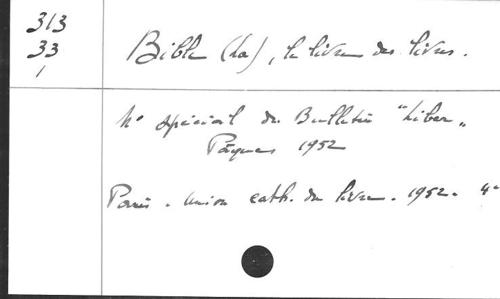 313
33
1
Bible (La), le livre des livres.
N° spécial du Bulletin "Liber"
Pâques 1952
Paris. Union cath. du livre. 1952. 4°